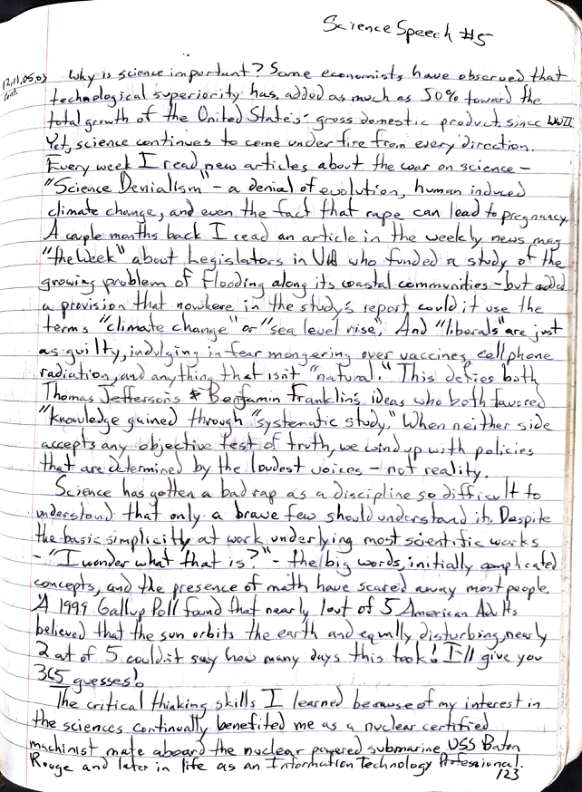 Science Speech #5
12,11,05,03
Why is science important? Some economists have observed that
technological superiority has added as much as 50% toward the
total growth of the United State's gross domestic product since WWII.
Yet, science continues to come under fire from every direction.
Every week I read new articles about the war on science -
"Science Denialism" - a denial of evolution, human induced
climate change, and even the fact that rape can lead to pregnancy.
A couple months back I read an article in the weekly news mag
"the Week" about Legislators in VA who funded a study of the
growing problem of flooding along its coastal communities - but added
a provision that nowhere in the study's report could it use the
terms "climate change" or "sea level rise". And "liberals" are just
as guilty, indulging in fear mongering over vaccines, cell phone
radiation, and anything that isn't "natural." This defies both
Thomas Jefferson's & Benjamin Franklin's ideas who both favored
"knowledge gained through "systematic study." When neither side
accepts any objective test of truth, we wind up with policies
that are determined by the loudest voices - not reality.
Science has gotten a bad rap as a discipline so difficult to
understand that only a brave few should understand it. Despite
the basic simplicity at work underlying most scientific works
- "I wonder what that is?" - the big words, initially complicated
concepts, and the presence of math have scared away most people.
A 1999 Gallup Poll found that nearly 1 out of 5 American Adults
believed that the sun orbits the earth and equally disturbing, nearly
2 out of 5 couldn't say how many days this took! I'll give you
365 guesses!
The critical thinking skills I learned because of my interest in
the sciences continually benefited me as a nuclear certified
machinist mate aboard the nuclear powered submarine USS Baton
Rouge and later in life as an Information Technology Professional.
123